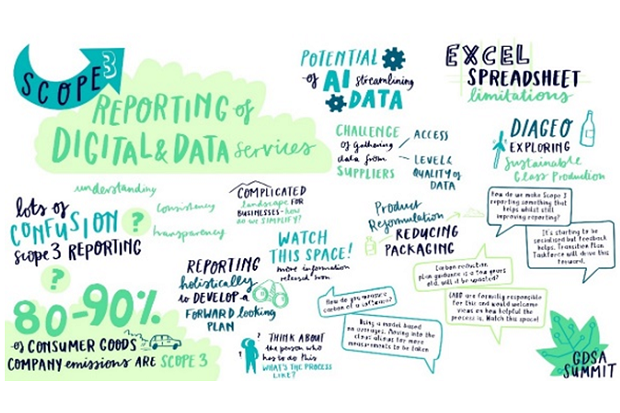 SCOPE 3
REPORTING of
DIGITAL & DATA services
POTENTIAL
of AI streamlining
DATA
EXCEL
SPREADSHEET
limitations
CHALLENGE
of gathering
data from
SUPPLIERS
ACCESS
LEVEL &
QUALITY of
DATA
DIAGEO
EXPLORING
Sustainable
Glass Production
understanding
Consistency
transparency
lots of
CONFUSION ?
SCOPE 3 REPORTING
?
COMPLICATED
landscape FOR
BUSINESSES - how
do we SIMPLIFY?
WATCH
THIS SPACE!
more information
released soon
Product
Reformulation
REDUCING
PACKAGING
REPORTING
holistically
to DEVELOP a
FORWARD looking
PLAN
80-90%
of CONSUMER GOODS
COMPANY emissions ARE SCOPE 3
THINK ABOUT
the person who
has to do this
WHAT'S THE PROCESS
LIKE?
How do we make Scope 3
reporting something that
helps whilst still
improving reporting?
It's starting to be
socialised but feedback
helps. Transition Plan
Taskforce will drive this
forward.
Carbon reduction
plan guidance is a few years
old. will it be updated?
are formally responsible
for this and would welcome
views on how helpful the
process is. Watch this space!
How do you measure
carbon of a software?
Using a model based
on averages. Moving into the
cloud allows for more
measurements to be taken
GDSA
SUMMIT